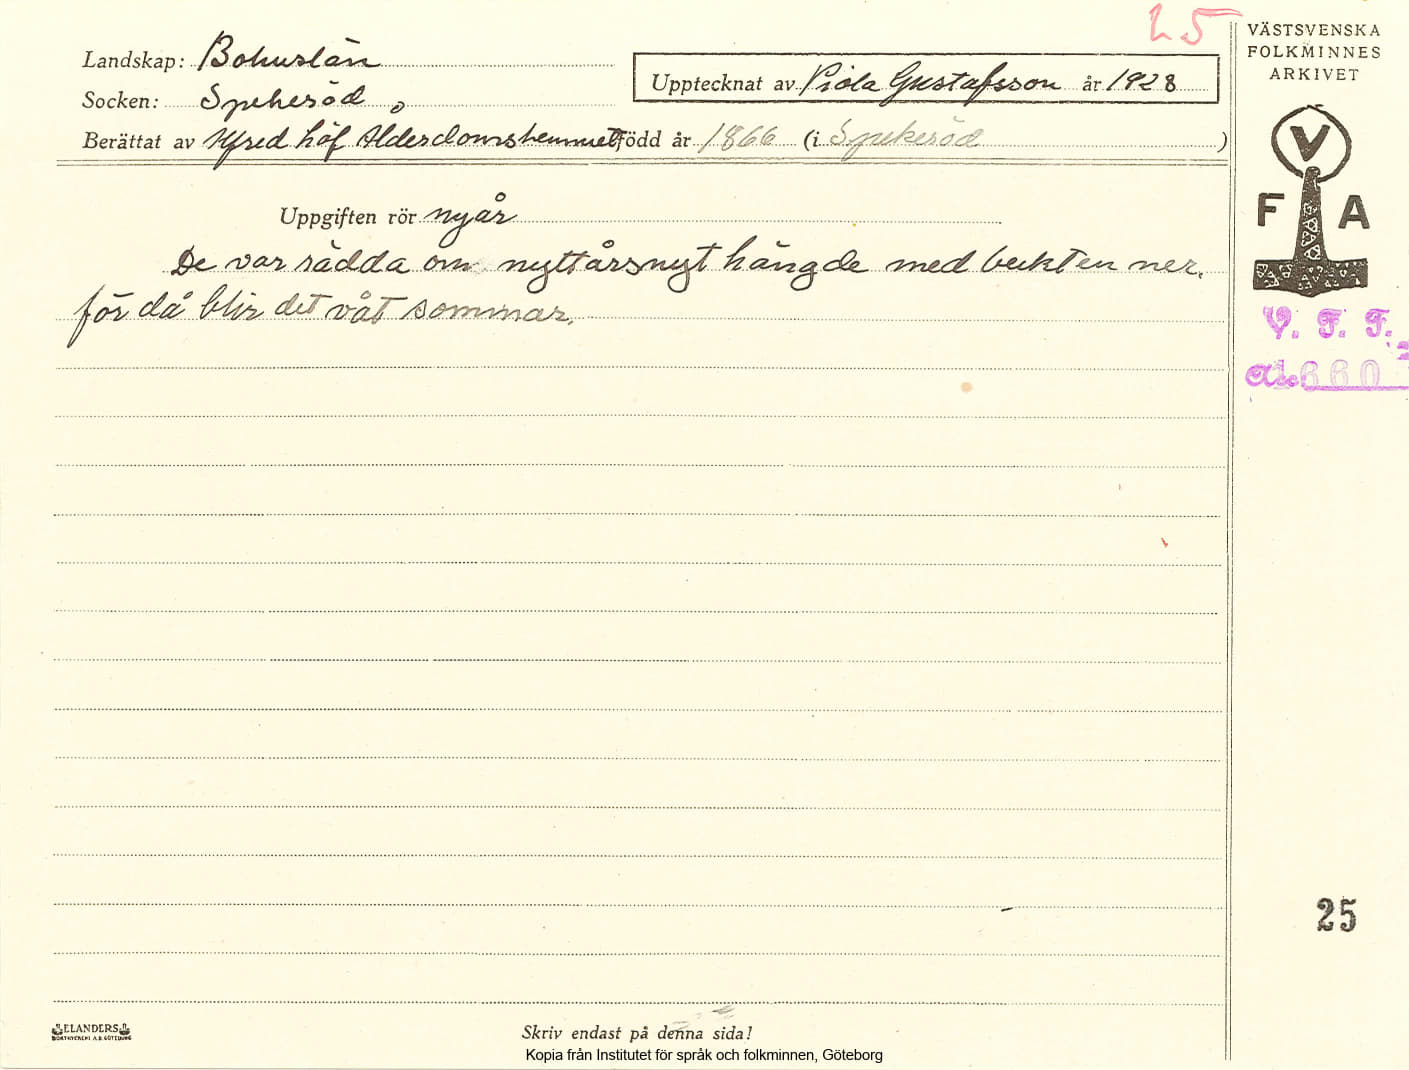 25
VÄSTSVENSKA
FOLKMINNES
ARKIVET
Landskap: Bohuslän
Socken: Spekeröd
Upptecknat av Viola Gustafsson år 1928
Berättat av Alfred Löf Ålderdomshemmet född år 1866 (i Spekeröd )
V
F A
Uppgiften rör nyår
De var rädda om nyttårsnyt hängde med bukten ner,
för då blir det våt sommar.
V. F. F.
660
25
ELANDERS
BOKTRYCKERI A.B. GÖTEBORG
Skriv endast på denna sida!
Kopia från Institutet för språk och folkminnen, Göteborg